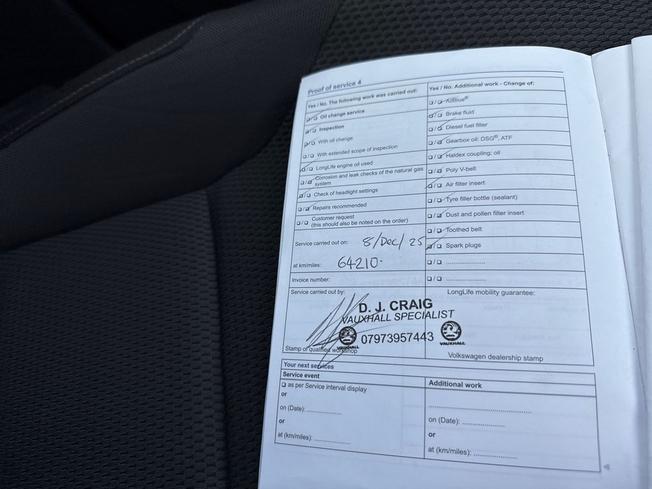 Proof of service 4
Yes / No. The following work was carried out:
Oil change service
Inspection
With oil change
With extended scope of inspection
LongLife engine oil used
Corrosion and leak checks of the natural gas
system
Check of headlight settings
Repairs recommended
Customer request
(this should also be noted on the order)
Service carried out on: 8/Dec/25
at km/miles: 64210.
Invoice number:
Service carried out by:
Stamp of qualified workshop
Yes / No. Additional work - Change of:
AdBlue®
Brake fluid
Diesel fuel filter
Gearbox oil: DSG®, ATF
Haldex coupling; oil
Poly V-belt
Air filter insert
Tyre filler bottle (sealant)
Dust and pollen filter insert
Toothed belt
Spark plugs
LongLife mobility guarantee:
D. J. CRAIG
VAUXHALL SPECIALIST
07973957443
VAUXHALL
VAUXHALL
Volkswagen dealership stamp
Your next services
Service event
as per Service interval display
or
on (Date):
or
at (km/miles):
Additional work
on (Date):
or
at (km/miles):